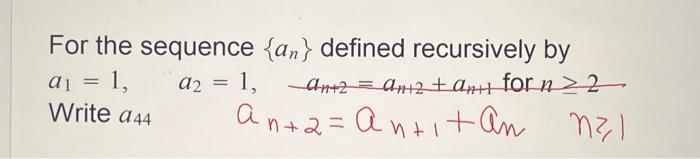 For the sequence {aₙ} defined recursively by
a₁ = 1, a₂ = 1, aₙ₊₂ = aₙ₊₂ + aₙ₊₁ for n ≥ 2
Write a₄₄ aₙ₊₂ = aₙ₊₁ + aₙ n ≥ 1